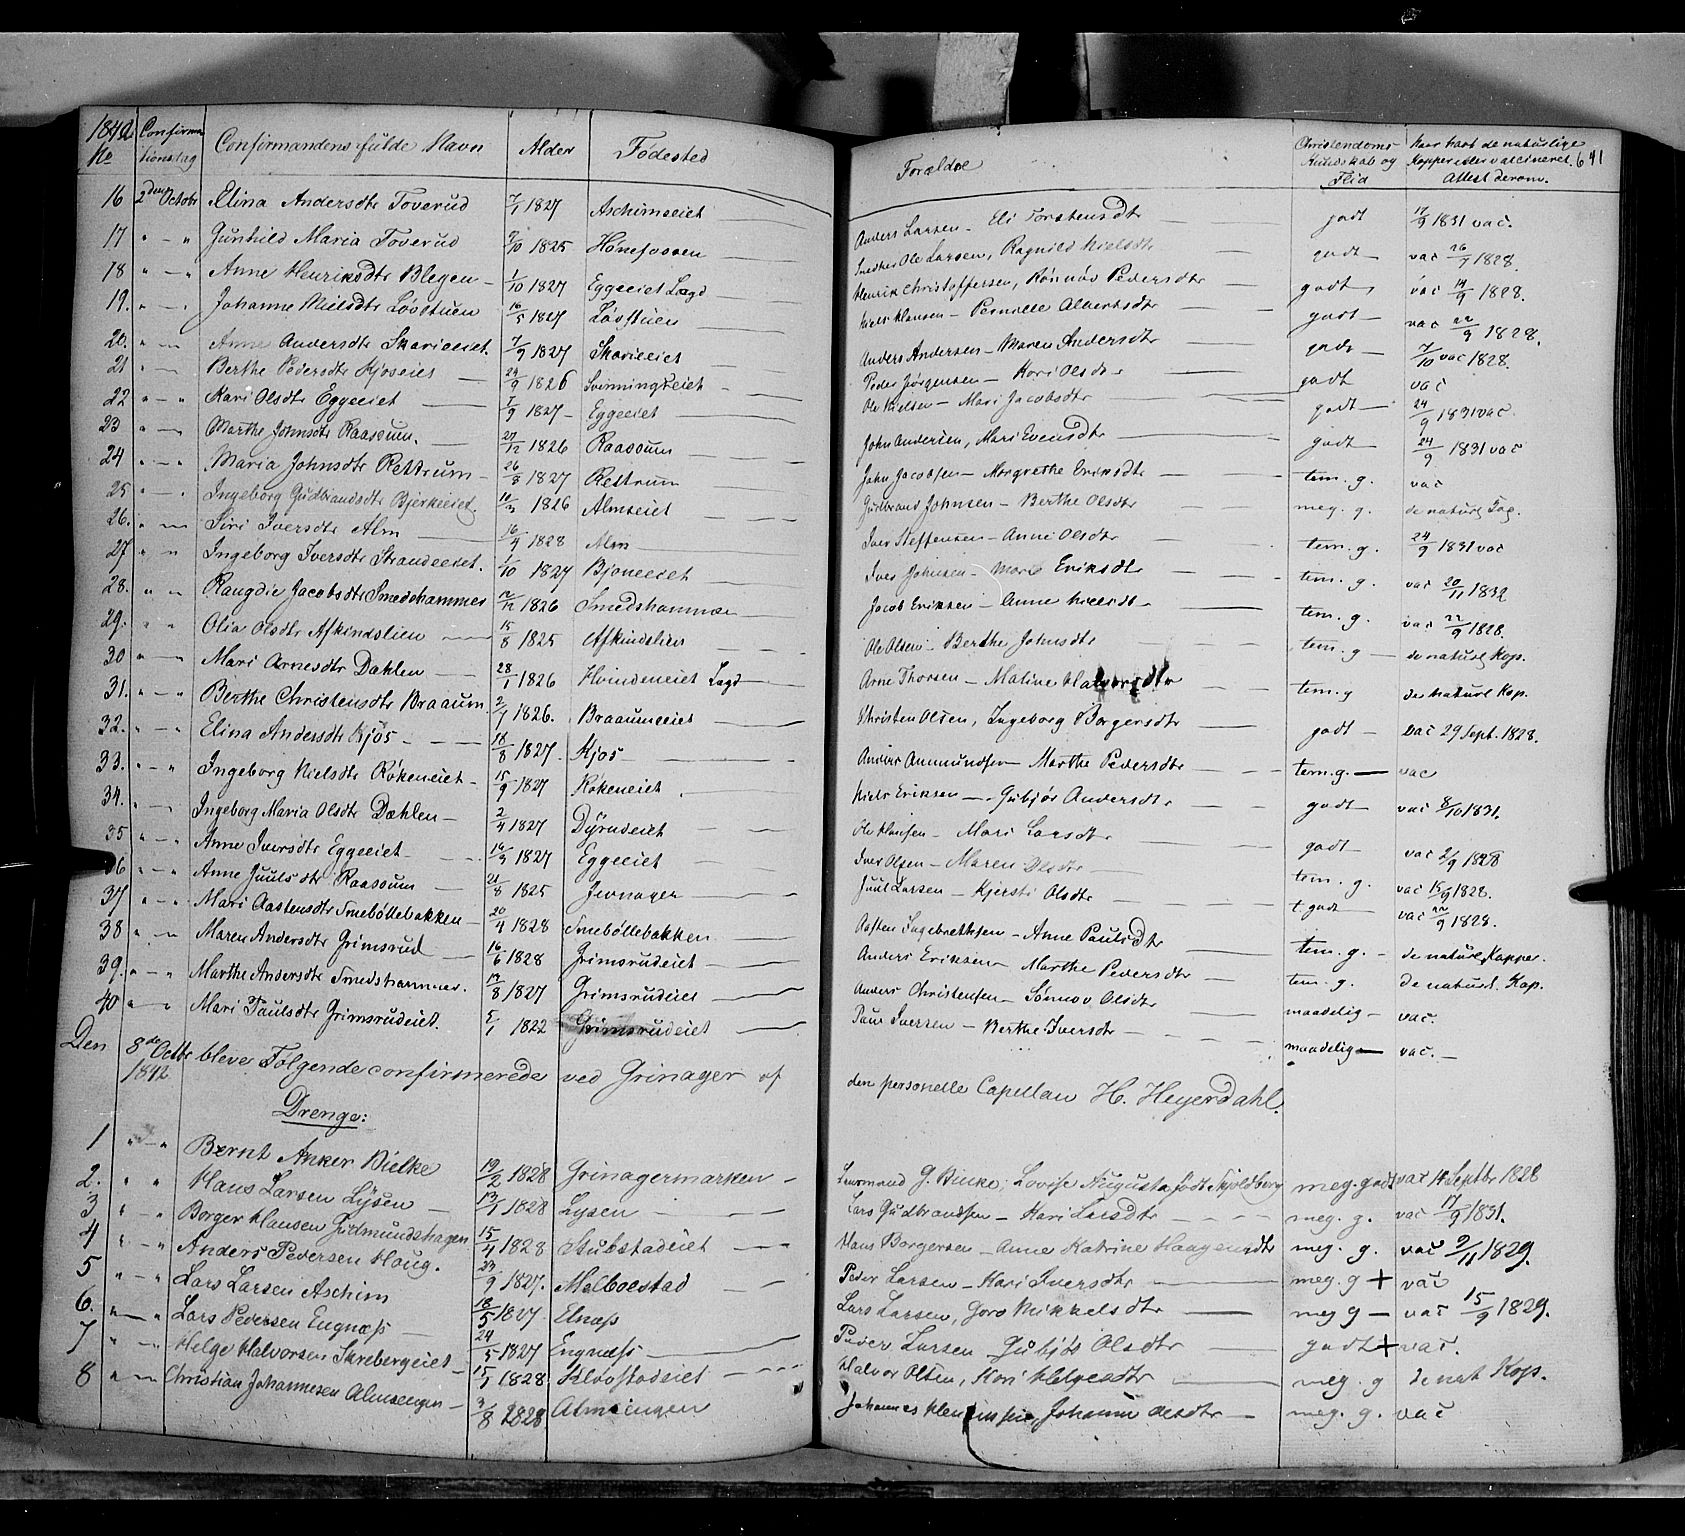 1842 No Confirmationsdag Confirmandens fulde Navn Alder Fødested Forældre Christendoms Kundskab og Flid Naar havt de naturlige Kopper eller vaccineret. Attest derom. 641
16 2den Octobr Elina Andersdtr Toverud 7/1 1827 Aschimseiet Anders Larsen - Eli Torstensdtr godt 17/9 1831 vac.
17 " - " Gunhild Maria Toverud 9/10 1825 Hønefossen Ole Larsen, Ragnild Nielsdtr godt vac 26/9 1828.
18 " - " Anne Henriksdtr Blegen 1/10 1827 Eggeeiet Lagd Henrik Christoffersen, Rønnøv Pedersdtr godt vac 14/9 1828.
19. " - " Johanne Nielsdtr Løvstuen 16/5 1827 Løvstuen Niels Hansen - Pernille Albertsdtr godt vac 22/9 1828.
20. " - " Anne Andersdtr Skarieeiet. 7/9 1827 Skarieeiet Anders Andersen - Maren Andersdtr godt 7/10 vac 1828.
21 " - " Berthe Pedersdtr Kjoseiet 24/9 1826 Svinningseiet Peder Jørgensen - Kari Olsdtr godt vac
22 " - " Kari Olsdtr Eggeeiet 7/9 1827 Eggeeiet Ole Nielsen - Mari Jacobsdtr godt 24/9 1831 vac
23 " - " Marthe Johnsdtr Raassum. 27/12 1826 Raassum John Andersen, Mari Evensdtr godt 24/9 1831 vac
24 " - " Maria Johnsdtr Rettrum 26/3 1827 Restrum John Jacobsen - Margrethe Eriksdtr tem. g. vac
25 " - " Ingeborg Gudbrandsdtr Bjerkeeiet. 10/3 1826 Almseiet Gudbrand Johnsen - Berthe Olsdtr meg. g. de naturl Kop.
26. " - " Siri Iversdtr Alm 16/4 1828 Alm Iver Steffensen - Anne Olsdtr tem. g. 24/9 1831 vac
27 " " Ingeborg Iversdtr Strandeeiet. 1/10 1827 Bjoneeiet Iver Johnsen - Mari Eriksdtr tem. g. vac 20/11 1832
28. " " Rangdie Jacobsdtr Smedshammer 12/12 1826 Smedshammer Jacob Eriksen - Anne Nielsdtr tem. g. vac 22/9 1828.
29. " " Olia Olsdtr Afkindslien 15/8 1825 Afkindslien Ole Olsen - Berthe Johnsdtr tem. g de naturl Kop.
30 " - " Mari Arnesdtr Dahlen 28/1 1826 Hvindeneiet Lagd Arne Thorsen - Maline Halvorsdtr tem. g de naturl Kop.
31. " - " Berthe Christensdtr Braaum. 2/7 1826. Braaumeeiet Christen Olsen, Ingeborg Borgersdtr godt vac 29 Sept. 1828.
32. " - " Elina Andersdtr Kjos 18/8 1827. Kjos Anders Amundsen - Marthe Pedersdtr tem. g. vac
33. " - " Ingeborg Nielsdtr Røkeneiet 15/9 1827 Røkeneiet Niels Eriksen - Gubjør Andersdtr godt vac 8/10 1831.
34. " - " Ingeborg Maria Olsdtr Dæhlen 2/4 1827 Dyrudeiet Ole Hansen - Mari Larsdtr godt vac 2/9 1828
35 " - " Anne Iversdtr Eggeeiet 14/9 1827 Eggeeiet Iver Olsen - Maren Olsdtr tem. g. vac 15/9 1828.
36 " - " Anne Juulsdtr Raassum 21/8 1825 Jevnager Juul Larsen - Kjersti Olsdtr t. godt vac 22/9 1828.
37 " - " Mari Aastensdtr Smebøllebakken 20/4 1828 Smebøllebakken Aasten Ingebrethsen - Anne Paulsdtr tem. g. de naturl Kopper.
38 " - " Maren Andersdtr Grimsrud 16/6 1828 Grimsrudeiet Anders Eriksen - Marthe Pedersdtr tem. g. de naturl. Kop.
39. " - " Marthe Andersdtr Smedshammer. 13/8 1827 Grimsrudeiet Anders Christensen - Sønnøv Olsdtr maadelig vac.
40 " " Mari Paulsdtr Grimsrudeiet. 5/1 1822 Grimsrudeiet Paul Iversen - Berthe Iversdtr maadelig vac.
Den 8de Octbr 1842 bleve Følgende confirmerede ved Grinager af den personelle Capellan H. Heyerdahl.
Drenge:
1 " - " Bernt Anker Bielke 19/2 1828 Grinagermarken G. Bielke; Lovise Augusta født Skjoldborg meg. godt vac 14 Septbr 1828
2. " " Hans Larsen Lysen 13/1 1828 Lysen Lars Gudbrandsen - Kari Larsdtr meg. g. vac 17/9 1831.
3 " - " Borger Hansen Gudmundshagen 15/4 1828 Stubstadeiet Hans Borgersen - Anne Katrine Haagensdtr meg. g. vac 9/11 1829.
4 " - " Anders Pedersen Haug. 23/9 1827. Melboestad Peder Larsen - Kari Iversdtr meg. g + vac
5 " - " Lars Larsen Aschim 18/5 1827 Elnæss Lars Larsen, Goro Mikkelsdtr meg g vac 15/9 1829.
6. " - " Lars Pedersen Engnæss 24/5 1827 Engnæss Peder Larsen - Gubjør Olsdtr godt + vac.
7 " - " Helge Halvorsen Skrebergeiet 15/1 1828 Klovstadeiet Halvor Olsen, Kari Helgesdtr meg. g de nat Kop.
8 " - " Christian Johannesen Almsengen 3/8 1828 Almsengen Johannes Johanne Olsdtr meg. g. vac